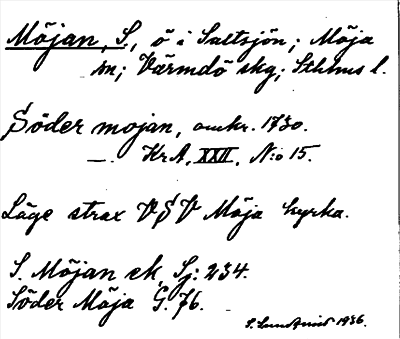 Möjan, S., ö i Saltsjön; Möja
sn; Värmdö skg; Sthlms l.
Söder mojan, omkr. 1730.
—. KrA, XXII, N:o 15.
Läge strax VSV Möja kyrka.
S. Möjan ek, Sj: 234.
Söder Möja G. 76.
S. Lundqvist 1936.